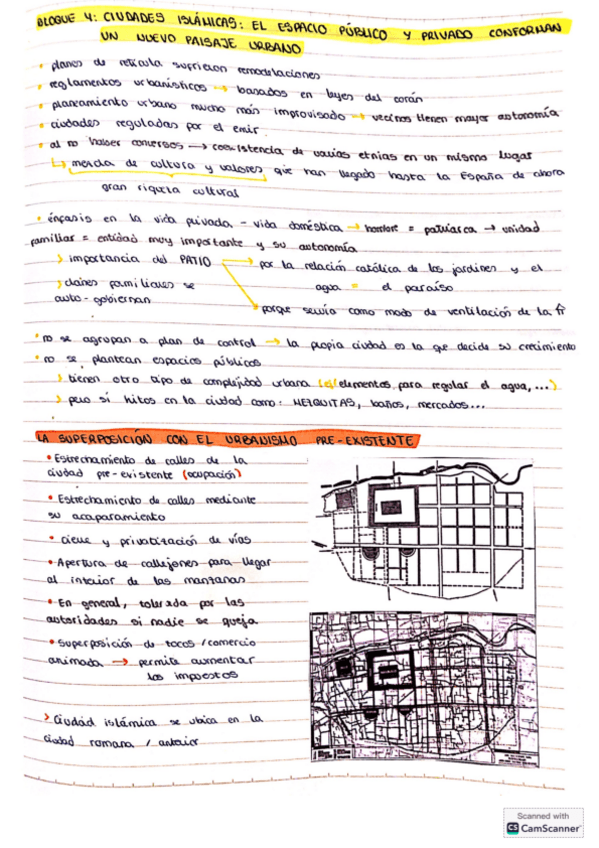 BLOQUE 4: CIUDADES ISLÁMICAS: EL ESPACIO PÚBLICO Y PRIVADO CONFORMAN
UN NUEVO PAISAJE URBANO
• planos de retícula sufrieron remodelaciones
• reglamentos urbanísticos → basados en leyes del corán
• planeamiento urbano mucho más improvisado → vecinos tienen mayor autonomía
• ciudades reguladas por el emir.
• al no haber conversos → coexistencia de varias etnias en un mismo lugar
↳ mezcla de cultura y valores que han llegado hasta la España de ahora
gran riqueza cultural
• énfasis en la vida privada - vida doméstica → hombre = patriarca → unidad
familiar = entidad muy importante y su autonomía
> importancia del PATIO → por la relación católica de los jardines y el
agua = el paraíso
> clanes familiares se
auto-gobiernan
porque servía como modo de ventilación de la
• no se agrupan a plan de control → la propia ciudad es la que decide su crecimiento
• no se plantean espacios públicos
> tienen otro tipo de complejidad urbana (ej/elementos para regular el agua,...)
> pero sí hitos en la ciudad como: MEZQUITAS, baños, mercados...
LA SUPERPOSICIÓN CON EL URBANISMO PRE-EXISTENTE
• Estrechamiento de calles de la
ciudad pre-existente (ocupación)
• Estrechamiento de calles mediante
su acaparamiento
• Cierre y privatización de vías
• Apertura de callejones para llegar
al interior de las manzanas
• En general, tolerada por las
autoridades si nadie se queja
• Superposición de zocos/comercio
animada → permite aumentar
los impuestos
> Ciudad islámica se ubica en la
ciudad romana / anterior
Scanned with
CS CamScanner